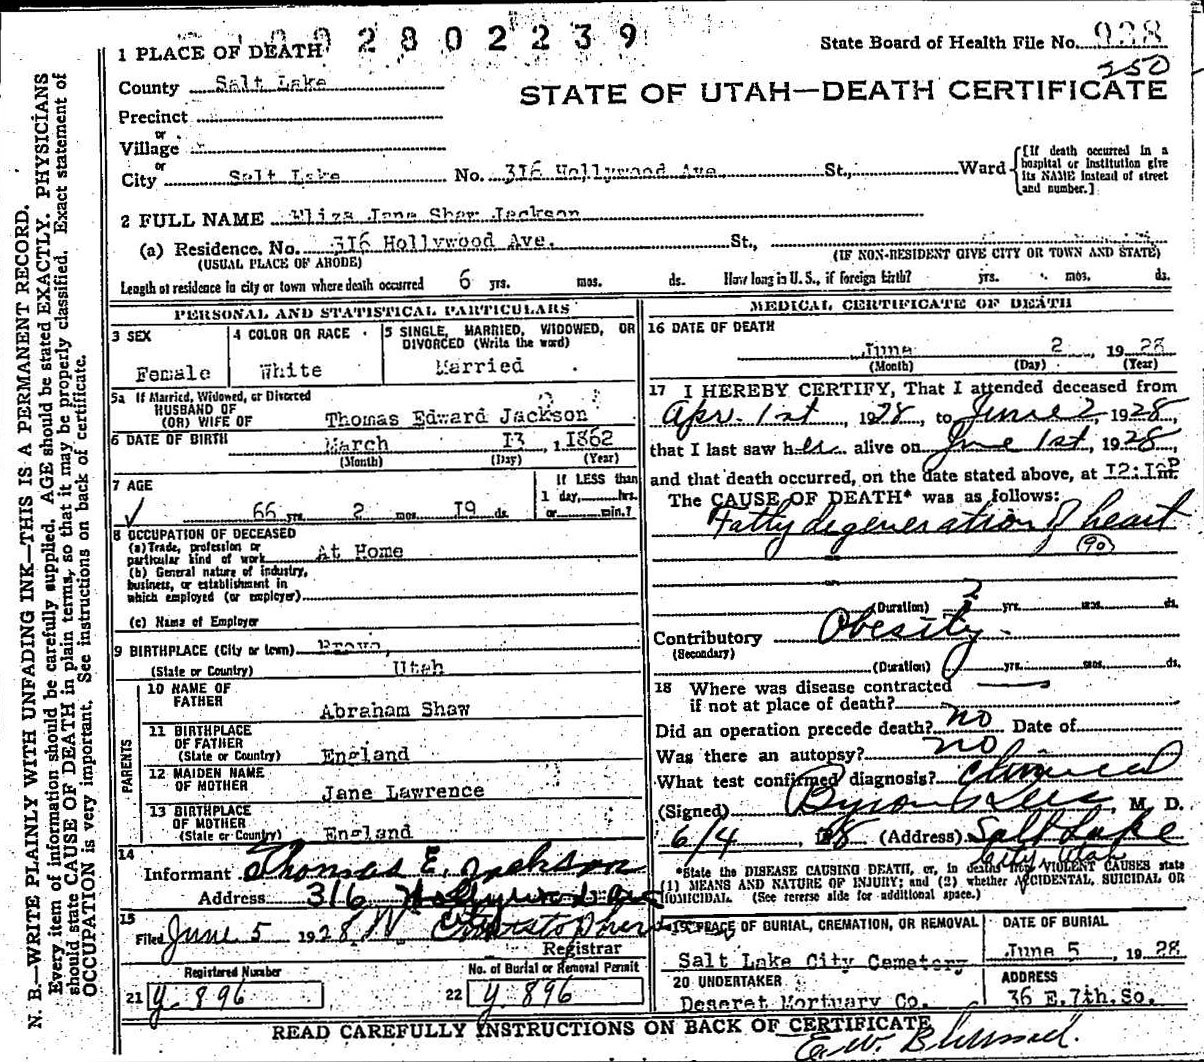 2802239
State Board of Health File No. 938
250
1 PLACE OF DEATH
County Salt Lake
STATE OF UTAH—DEATH CERTIFICATE
Precinct
or
Village
or
City Salt Lake No. 316 Hollywood Ave St., Ward
[If death occurred in a hospital or institution give its NAME instead of street and number.]
2 FULL NAME Eliza Jane Shaw Jackson
(a) Residence. No. 316 Hollywood Ave. St.,
(USUAL PLACE OF ABODE) (IF NON-RESIDENT GIVE CITY OR TOWN AND STATE)
Length of residence in city or town where death occurred 6 yrs. mos. ds. How long in U.S., if foreign birth? yrs. mos. ds.
PERSONAL AND STATISTICAL PARTICULARS
3 SEX
Female
4 COLOR OR RACE
White
5 SINGLE, MARRIED, WIDOWED, OR
DIVORCED (Write the word)
Married
5a If Married, Widowed, or Divorced
HUSBAND OF
(OR) WIFE OF Thomas Edward Jackson
6 DATE OF BIRTH March 13, 1862
(Month) (Day) (Year)
7 AGE
66 yrs. 2 mos. 19 ds.
If LESS than
1 day, hrs.
or min.?
8 OCCUPATION OF DECEASED
(a) Trade, profession or
particular kind of work At Home
(b) General nature of industry,
business, or establishment in
which employed (or employer)
(c) Name of Employer
9 BIRTHPLACE (City or town) Provo,
(State or Country) Utah
PARENTS
10 NAME OF
FATHER Abraham Shaw
11 BIRTHPLACE
OF FATHER
(State or Country) England
12 MAIDEN NAME
OF MOTHER Jane Lawrence
13 BIRTHPLACE
OF MOTHER
(State or Country) England
14
Informant Thomas E. Jackson
Address 316 Hollywood Ave
15
Filed June 5 1928
Registrar
Registered Number
21 y 896
No. of Burial or Removal Permit
22 y 896
MEDICAL CERTIFICATE OF DEATH
16 DATE OF DEATH
June 2, 1928
(Month) (Day) (Year)
17 I HEREBY CERTIFY, That I attended deceased from
Apr. 1st, 1928, to June 2, 1928,
that I last saw her alive on June 1st, 1928
and that death occurred, on the date stated above, at
The CAUSE OF DEATH* was as follows:
Fatty degeneration of heart
(90)
(Duration) 2 yrs. mos. ds.
Contributory Obesity
(Secondary)
(Duration) yrs. mos. ds.
18 Where was disease contracted
if not at place of death?
Did an operation precede death? no Date of
Was there an autopsy? no
What test confirmed diagnosis? Clinical
(Signed) Byron Rees, M. D.
6/4, 28 (Address) Salt Lake
City Utah
*State the DISEASE CAUSING DEATH, or, in deaths from VIOLENT CAUSES state
(1) MEANS AND NATURE OF INJURY; and (2) whether ACCIDENTAL, SUICIDAL OR
HOMICIDAL. (See reverse side for additional space.)
19 PLACE OF BURIAL, CREMATION, OR REMOVAL
Salt Lake City Cemetery
DATE OF BURIAL
June 5, 1928
20 UNDERTAKER
Deseret Mortuary Co.
ADDRESS
36 E. 7th. So.
READ CAREFULLY INSTRUCTIONS ON BACK OF CERTIFICATE
N. B.—WRITE PLAINLY WITH UNFADING INK—THIS IS A PERMANENT RECORD.
Every item of information should be carefully supplied. AGE should be stated EXACTLY. PHYSICIANS
should state CAUSE OF DEATH in plain terms, so that it may be properly classified. Exact statement of
OCCUPATION is very important. See instructions on back of certificate.